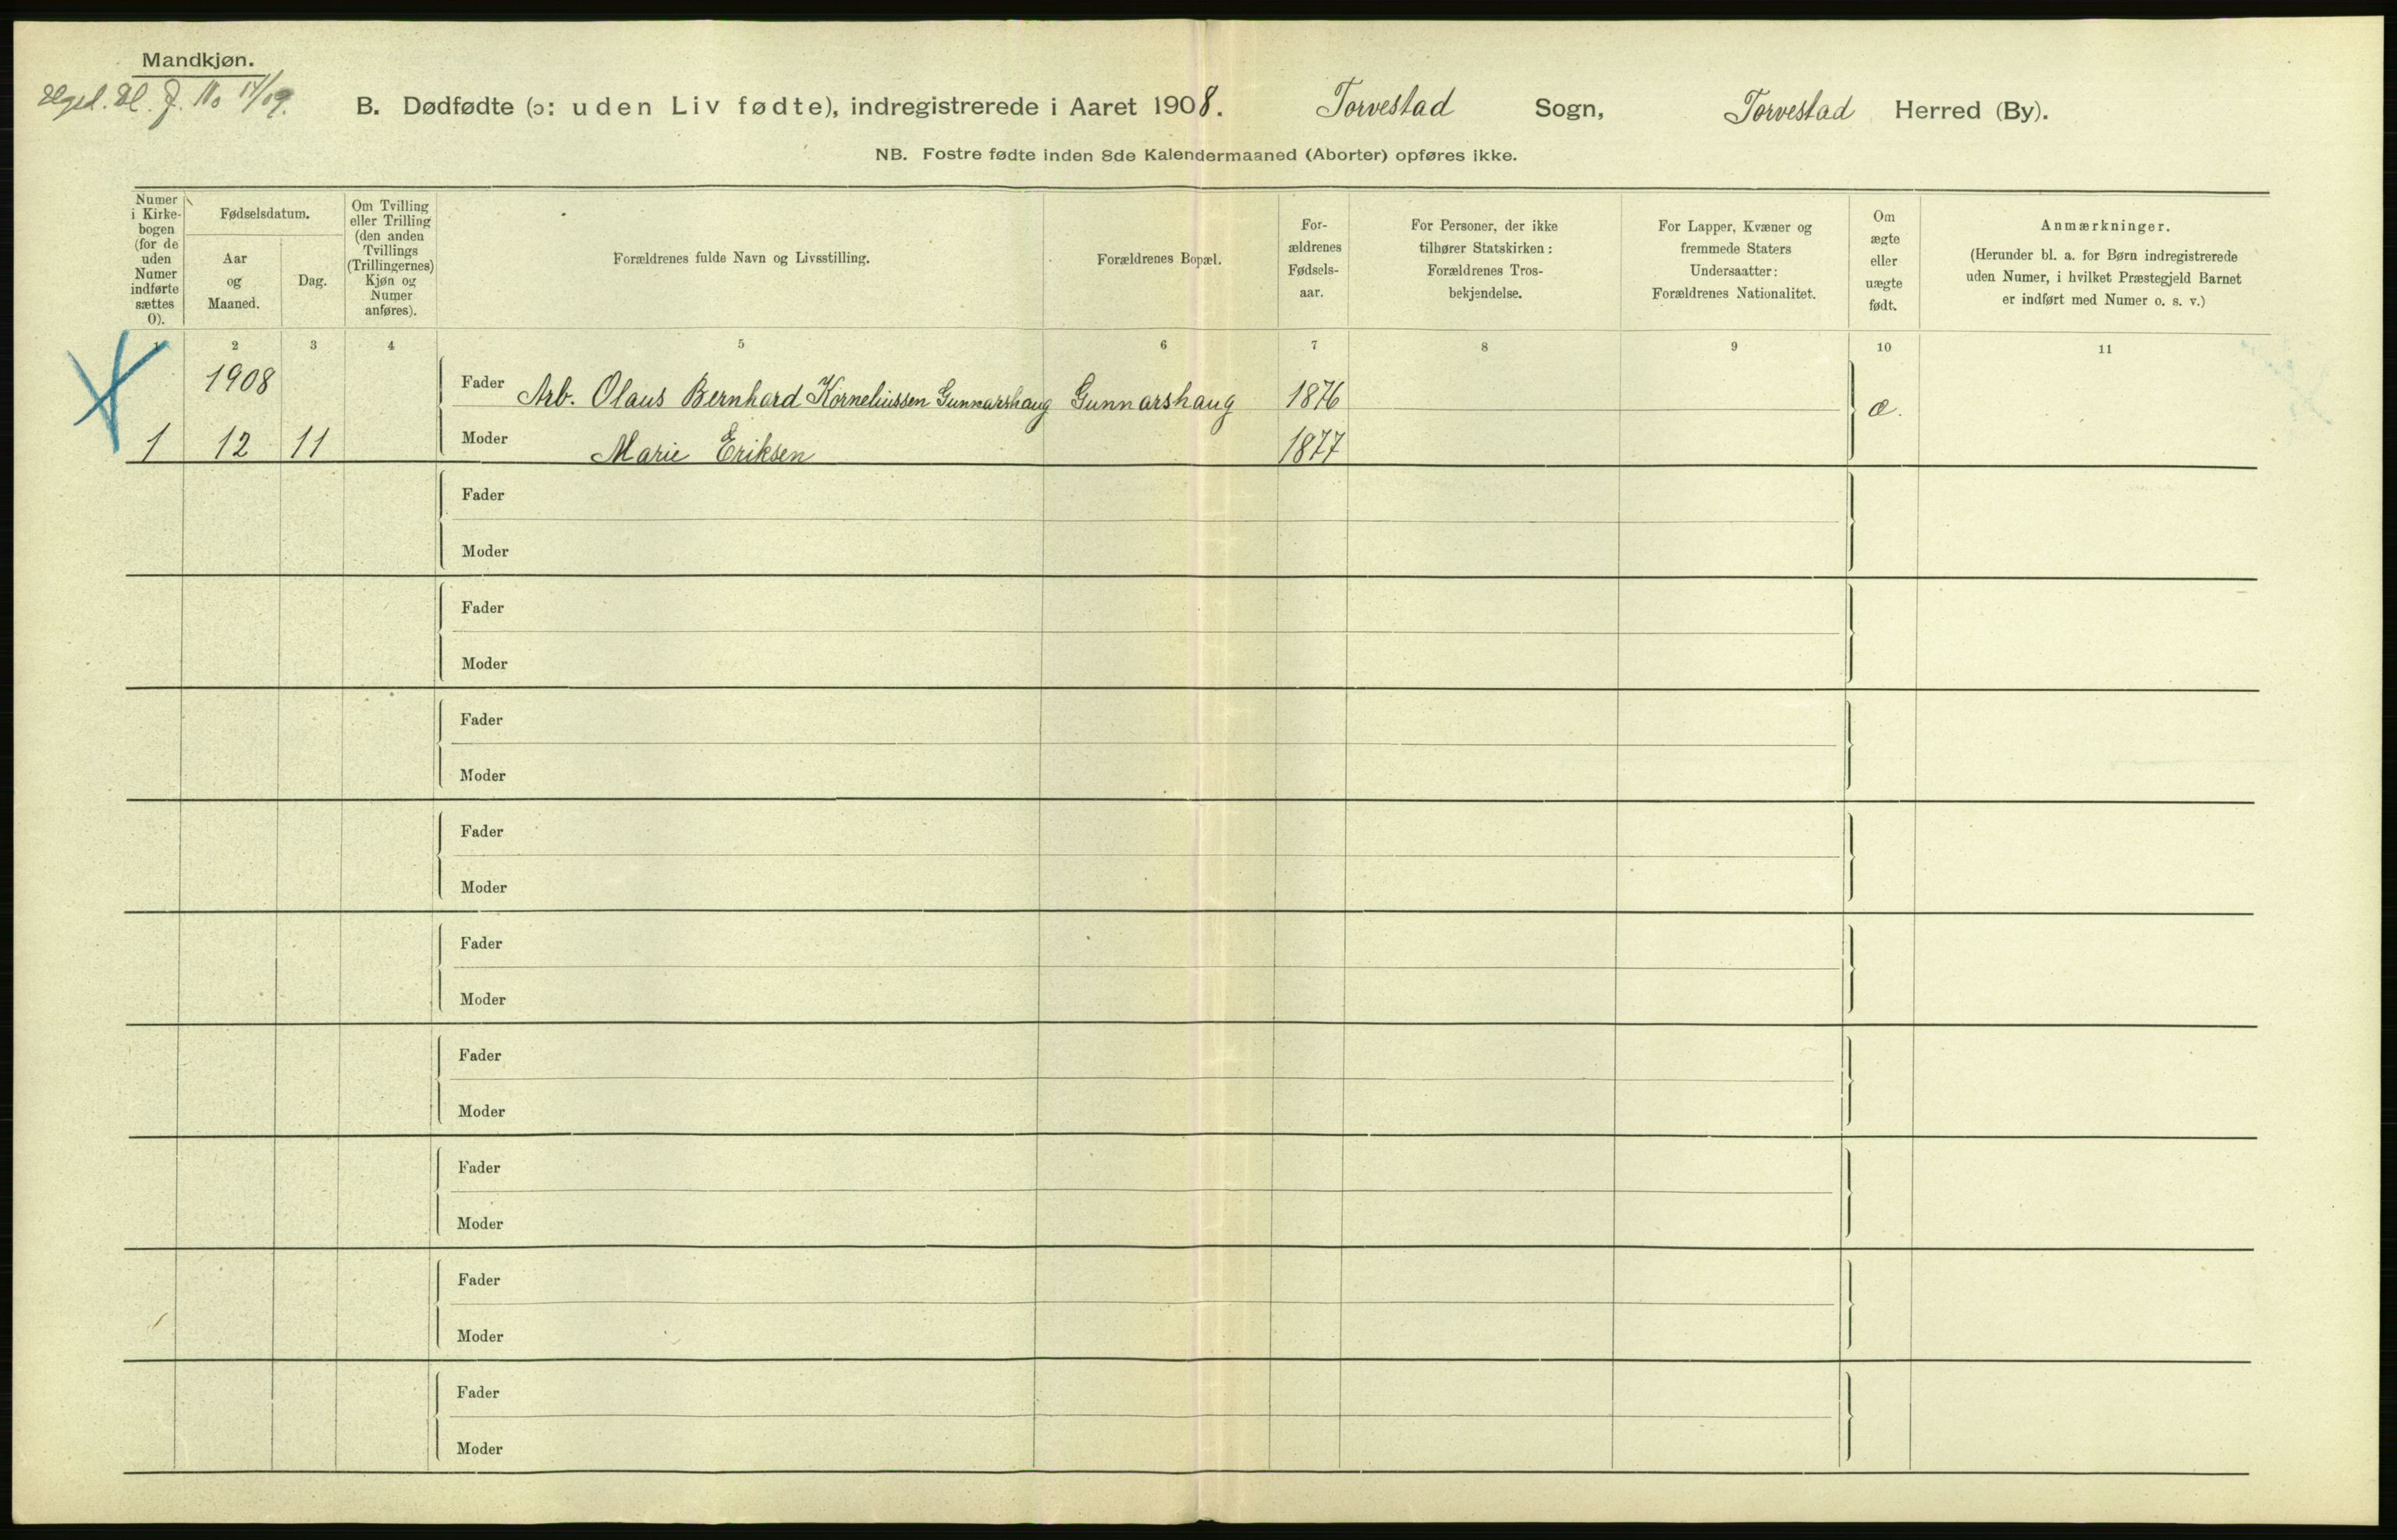 Mandkjøn.
J. No 17/09.
B. Dødfødte (ɔ: uden Liv fødte), indregistrerede i Aaret 1908. Torvestad Sogn, Torvestad Herred (By).
NB. Fostre fødte inden 8de Kalendermaaned (Aborter) opføres ikke.
Numer i Kirke-bogen (for de uden Numer indførte sættes 0).
Fødselsdatum.
Aar og Maaned.
Dag.
Om Tvilling eller Trilling (den anden Tvillings (Trillingernes) Kjøn og Numer anføres).
Forældrenes fulde Navn og Livsstilling.
Forældrenes Bopæl.
For-ældrenes Fødsels-aar.
For Personer, der ikke tilhører Statskirken: Forældrenes Tros-bekjendelse.
For Lapper, Kvæner og fremmede Staters Undersaatter: Forældrenes Nationalitet.
Om ægte eller uægte født.
Anmærkninger.
(Herunder bl. a. for Børn indregistrerede uden Numer, i hvilket Præstegjeld Barnet er indført med Numer o. s. v.)
1 2 3 4 5 6 7 8 9 10 11
1908 Fader Arb. Olaus Bernhard Korneliussen Gunnarshaug Gunnarshaug 1876 æ.
1 12 11 Moder Marie Eriksen 1877
Fader
Moder
Fader
Moder
Fader
Moder
Fader
Moder
Fader
Moder
Fader
Moder
Fader
Moder
Fader
Moder
Fader
Moder